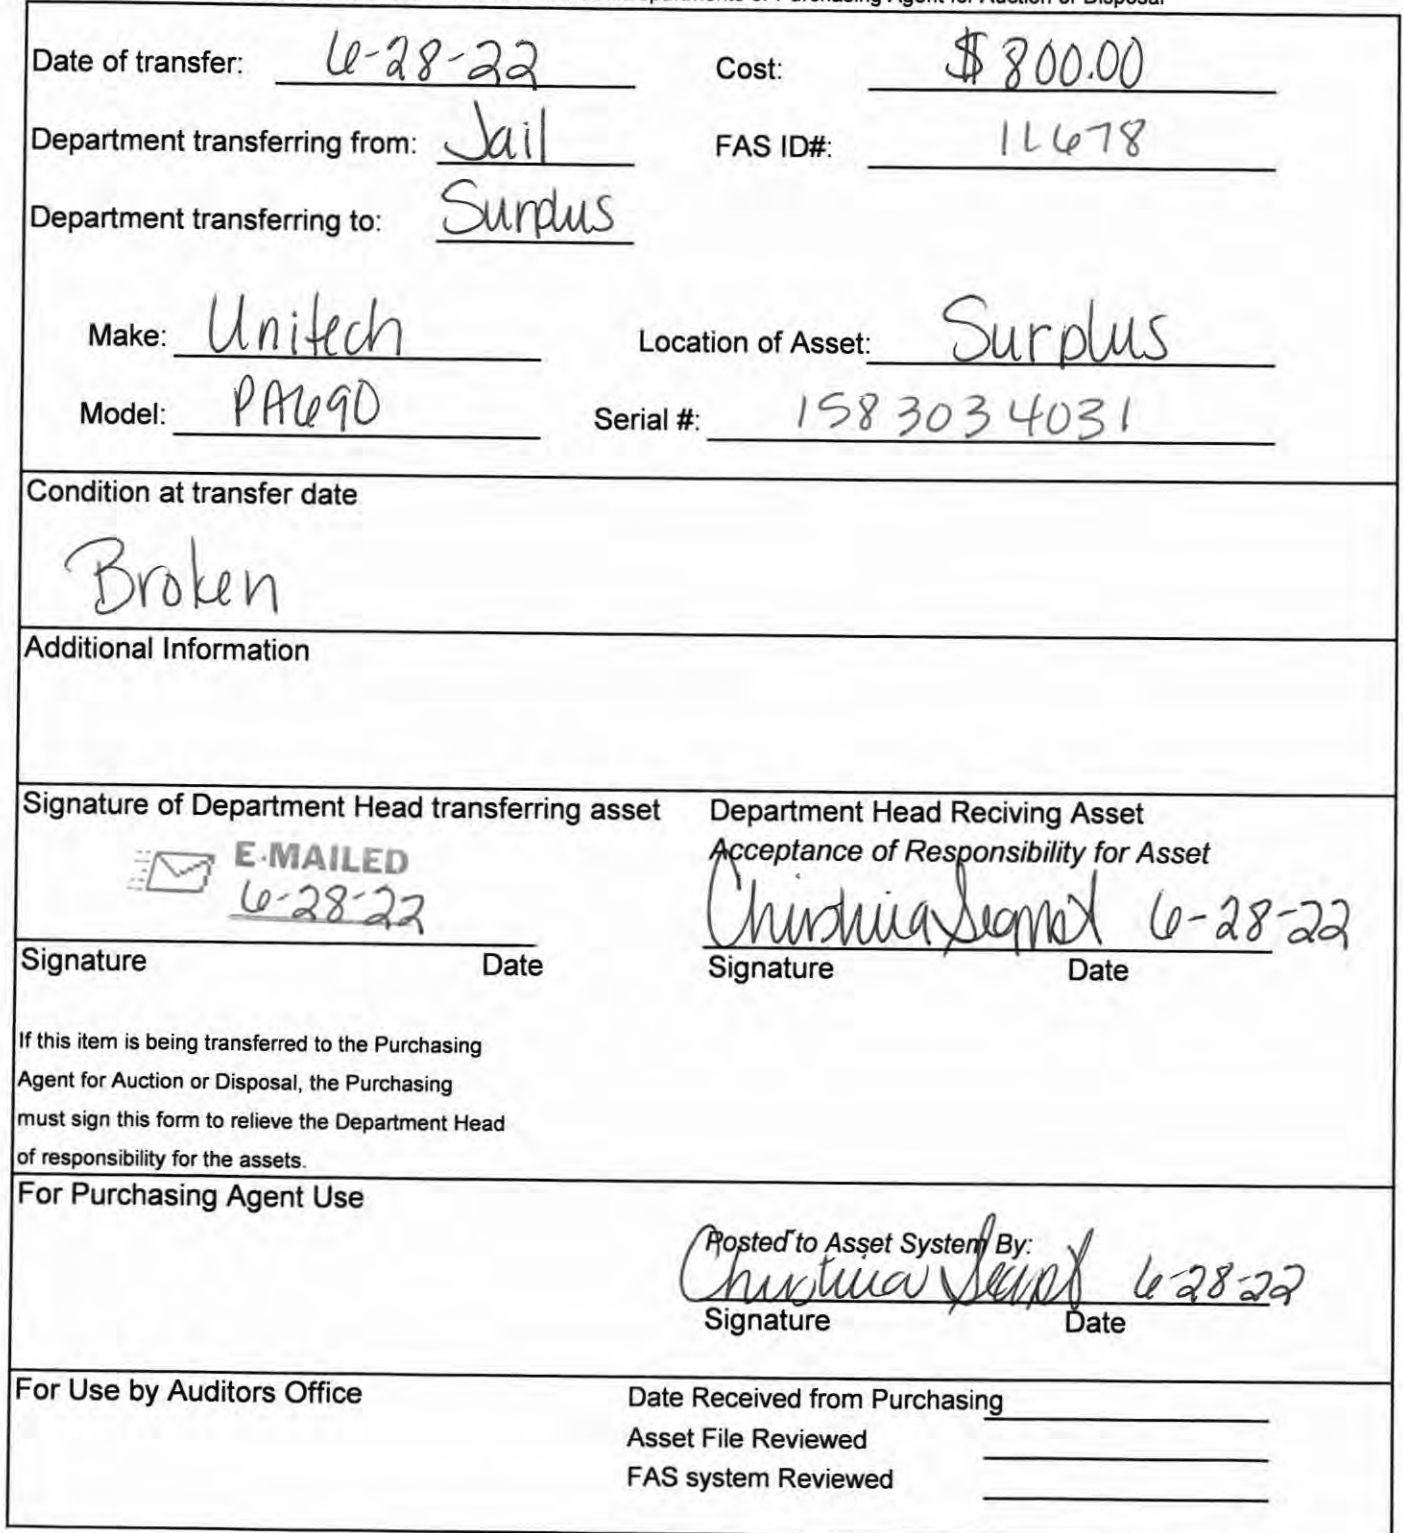 Purchasing Agent for Auction or Disposal
Date of transfer: 6-28-22 Cost: $800.00
Department transferring from: Jail FAS ID#: 11678
Department transferring to: Surplus
Make: Unitech Location of Asset: Surplus
Model: PA690 Serial #: 1583034031
Condition at transfer date
Broken
Additional Information
Signature of Department Head transferring asset Department Head Reciving Asset
E-MAILED Acceptance of Responsibility for Asset
6-28-22 6-28-22
Signature Date Signature Date
If this item is being transferred to the Purchasing
Agent for Auction or Disposal, the Purchasing
must sign this form to relieve the Department Head
of responsibility for the assets.
For Purchasing Agent Use
Posted to Asset System By:
Christina 6-28-22
Signature Date
For Use by Auditors Office Date Received from Purchasing
Asset File Reviewed
FAS system Reviewed